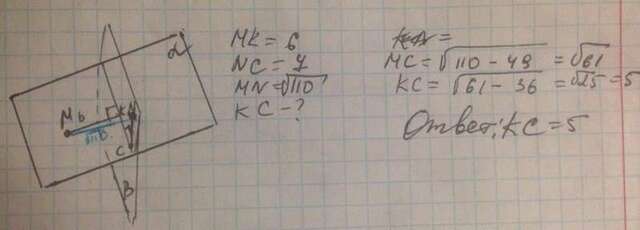 α
M 6 K
C
β
MK = 6
NC = 7
MN = √110
KC - ?
KA =
MC = √110 - 49 = √61
KC = √61 - 36 = √25 = 5
Ответ: KC = 5